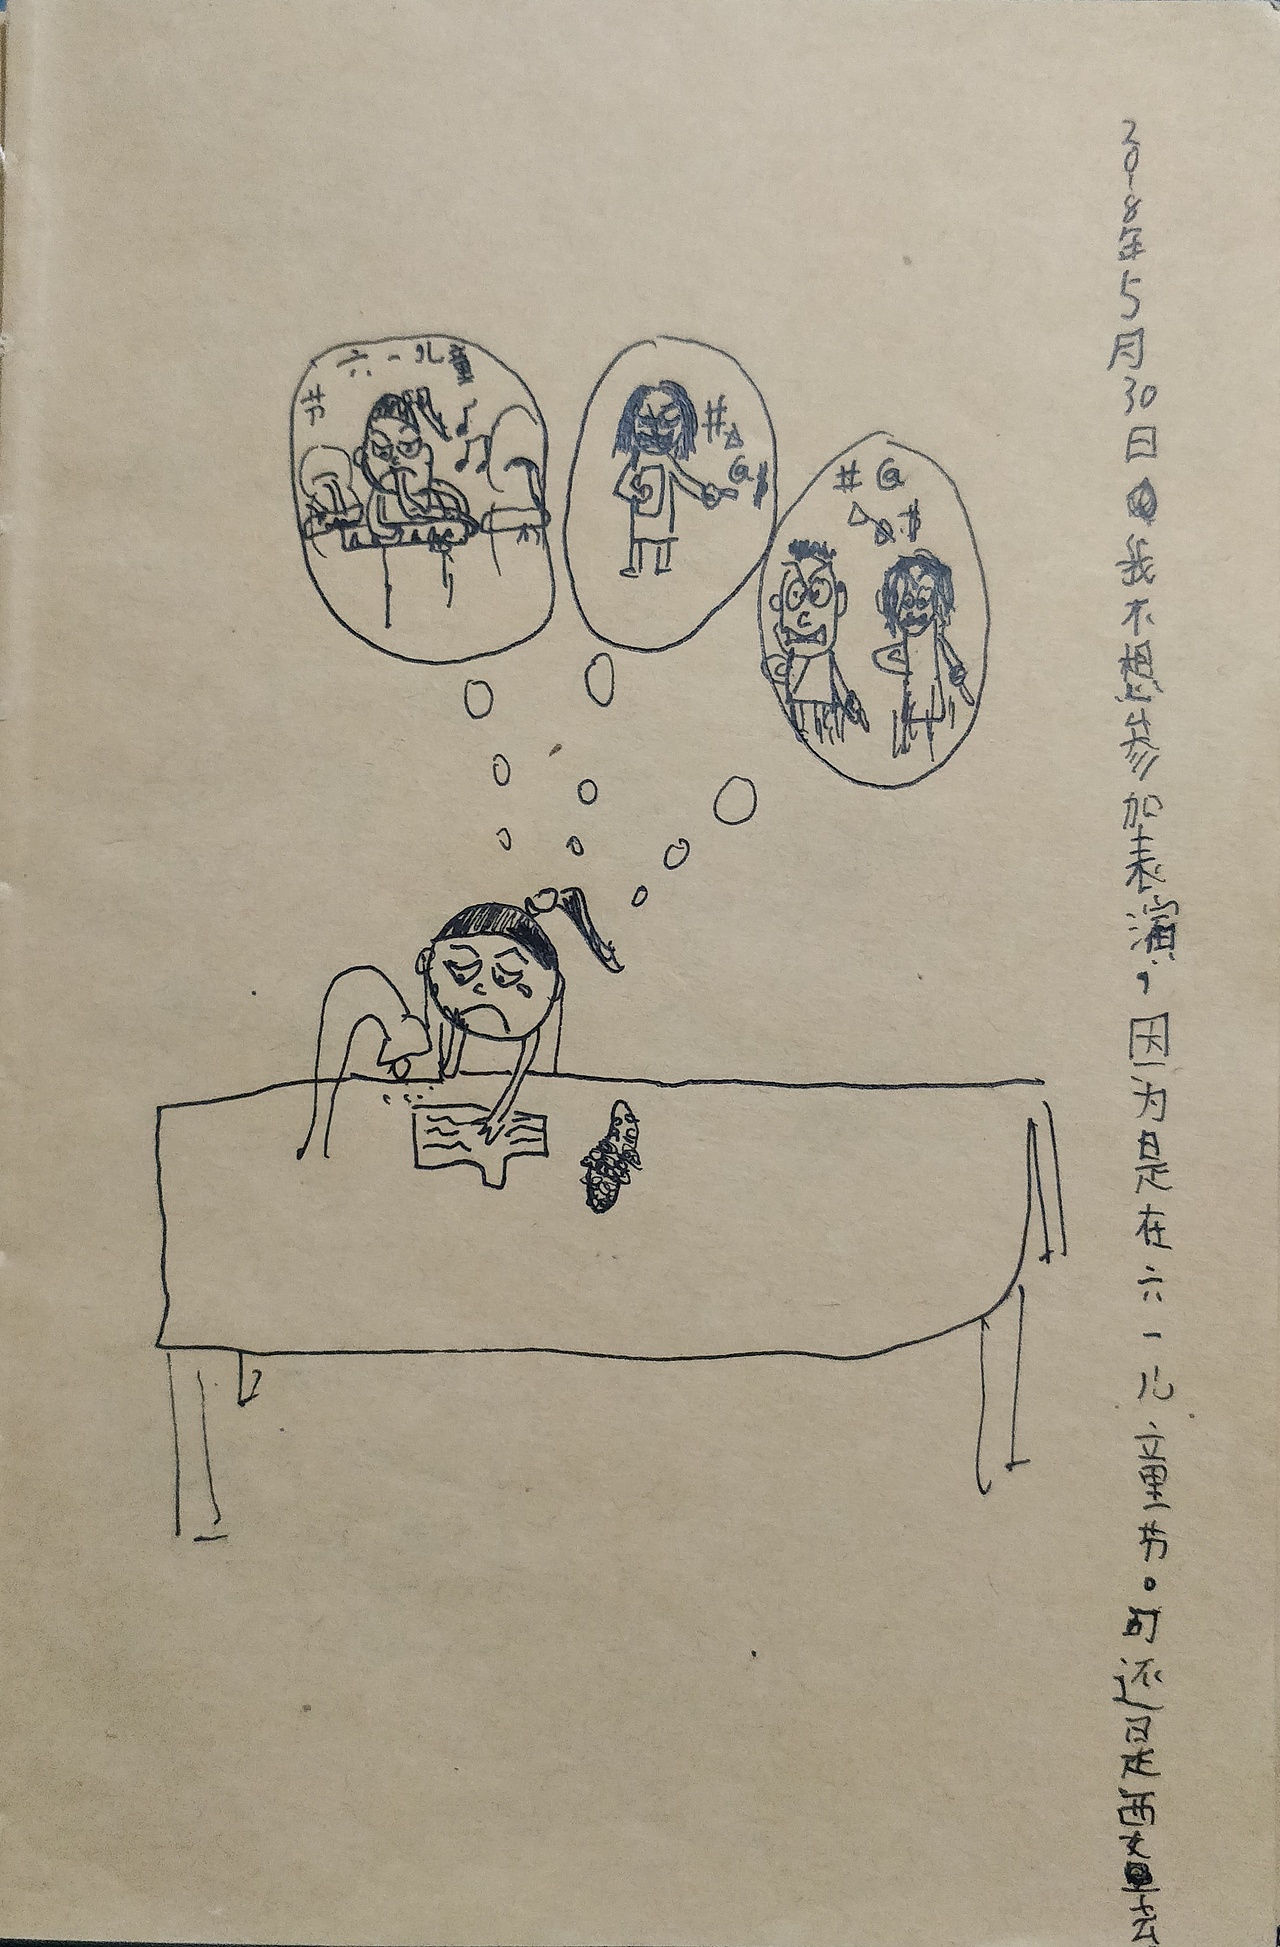 2018年5月30日我不想参加表演，因为是在六一儿童节。可还是要去
六一儿童
节
#△
@
#@
△